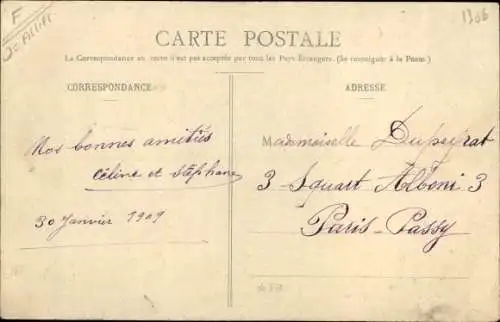 F
1906
CARTE POSTALE
La Correspondance au recto n'est pas acceptée par tous les Pays Étrangers. (Se renseigner à la Poste.)
CORRESPONDANCE
ADRESSE
Mos bonnes amitiés
Céline et Stéphane
30 Janvier 1909
Mademoiselle Dupeyrat
3 - Squart Alboni 3
Paris - Passy